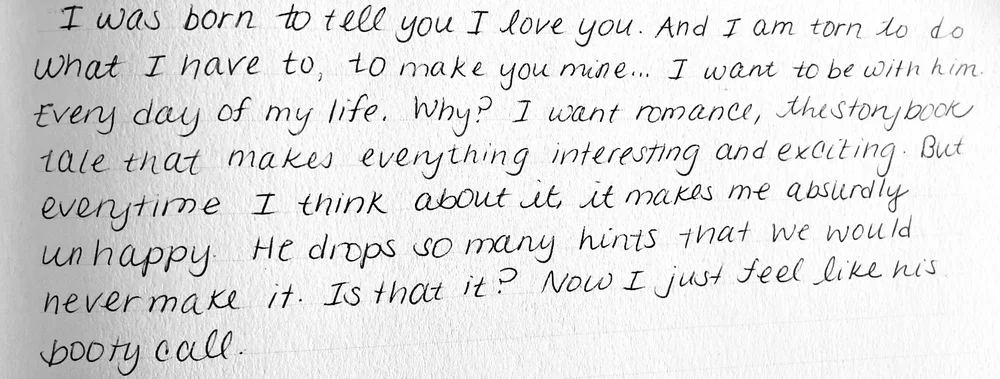 I was born to tell you I love you. And I am torn to do
what I have to, to make you mine... I want to be with him.
Every day of my life. Why? I want romance, the storybook
tale that makes everything interesting and exciting. But
everytime I think about it, it makes me absurdly
unhappy. He drops so many hints that we would
never make it. Is that it? Now I just feel like his
booty call.